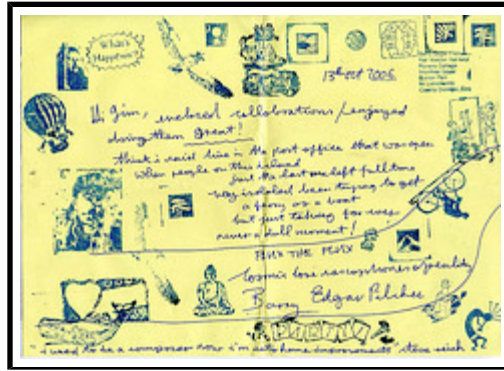 What's
Happening?
13th Oct 2006
Hi Jim, enclosed collaborations/enjoyed
doing them great!
think i said live in the post office that was open
when people on this island
just the last one left full time
very isolated been trying to get
a ferry or a boat
but just taking for ever
never a dull moment!
FLUX THE FLUX
Cosmic love
Barry Edgar Pilcher
"i used to be a composer now i'm into home improvements" steve reich